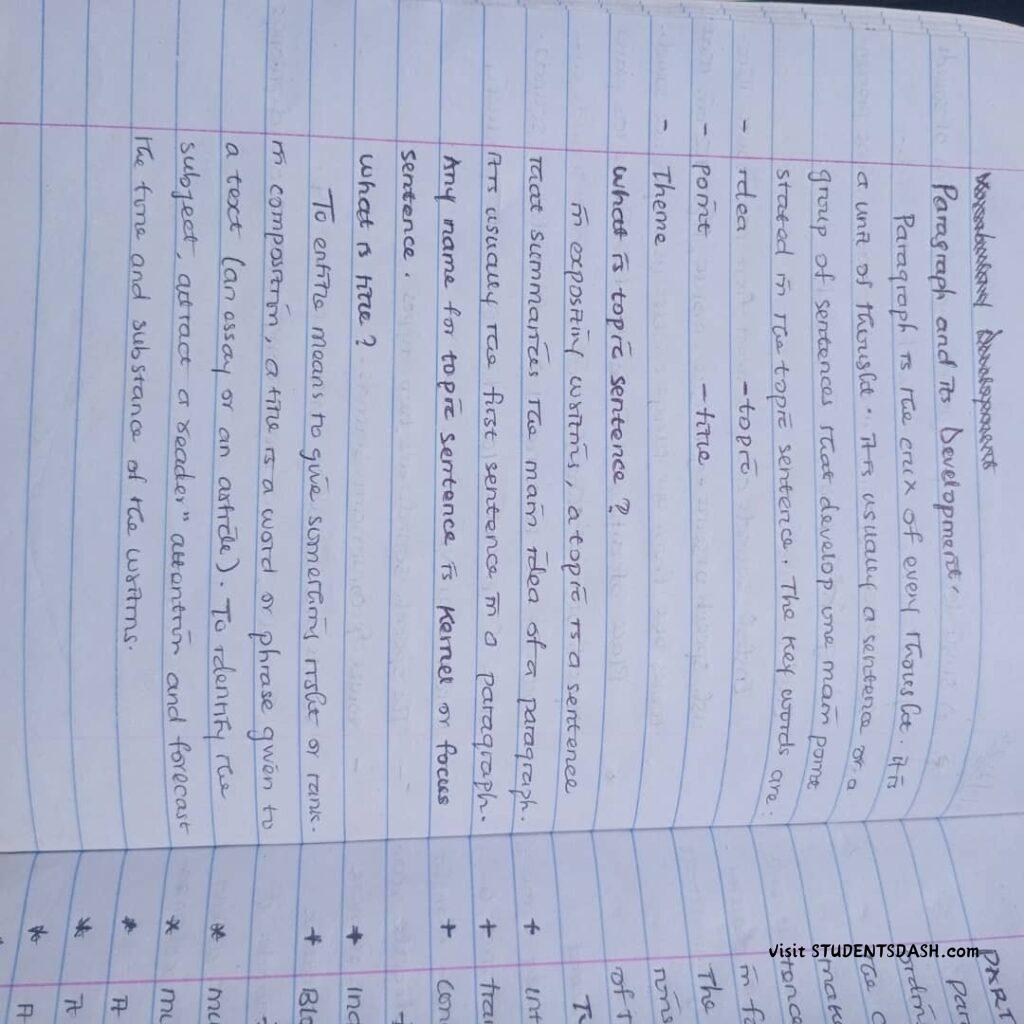 Paragraph and its Development
Paragraph is the crux of every thought. it is
a unit of thought. it is usually a sentence or a
group of sentences that develop one main point
stated in the topic sentence. The key words are:
- idea -topic
- point -title
- Theme
what is topic sentence?
in expository writing, a topic is a sentence
that summarizes the main idea of a paragraph.
it is usually the first sentence in a paragraph.
Any name for topic sentence is Kernel or focus
sentence.
what is title?
To entitle means to give something right or rank.
in composition, a title is a word or phrase given to
a text (an assay or an article). To identify the
subject, attract a reader" attention and forecast
the tone and substance of the writing.
PART
par
The
of T
+ int
+ tran
+ con
+
+ Blo
*
* mu
* A
* A
* A
visit STUDENTSDASH.com